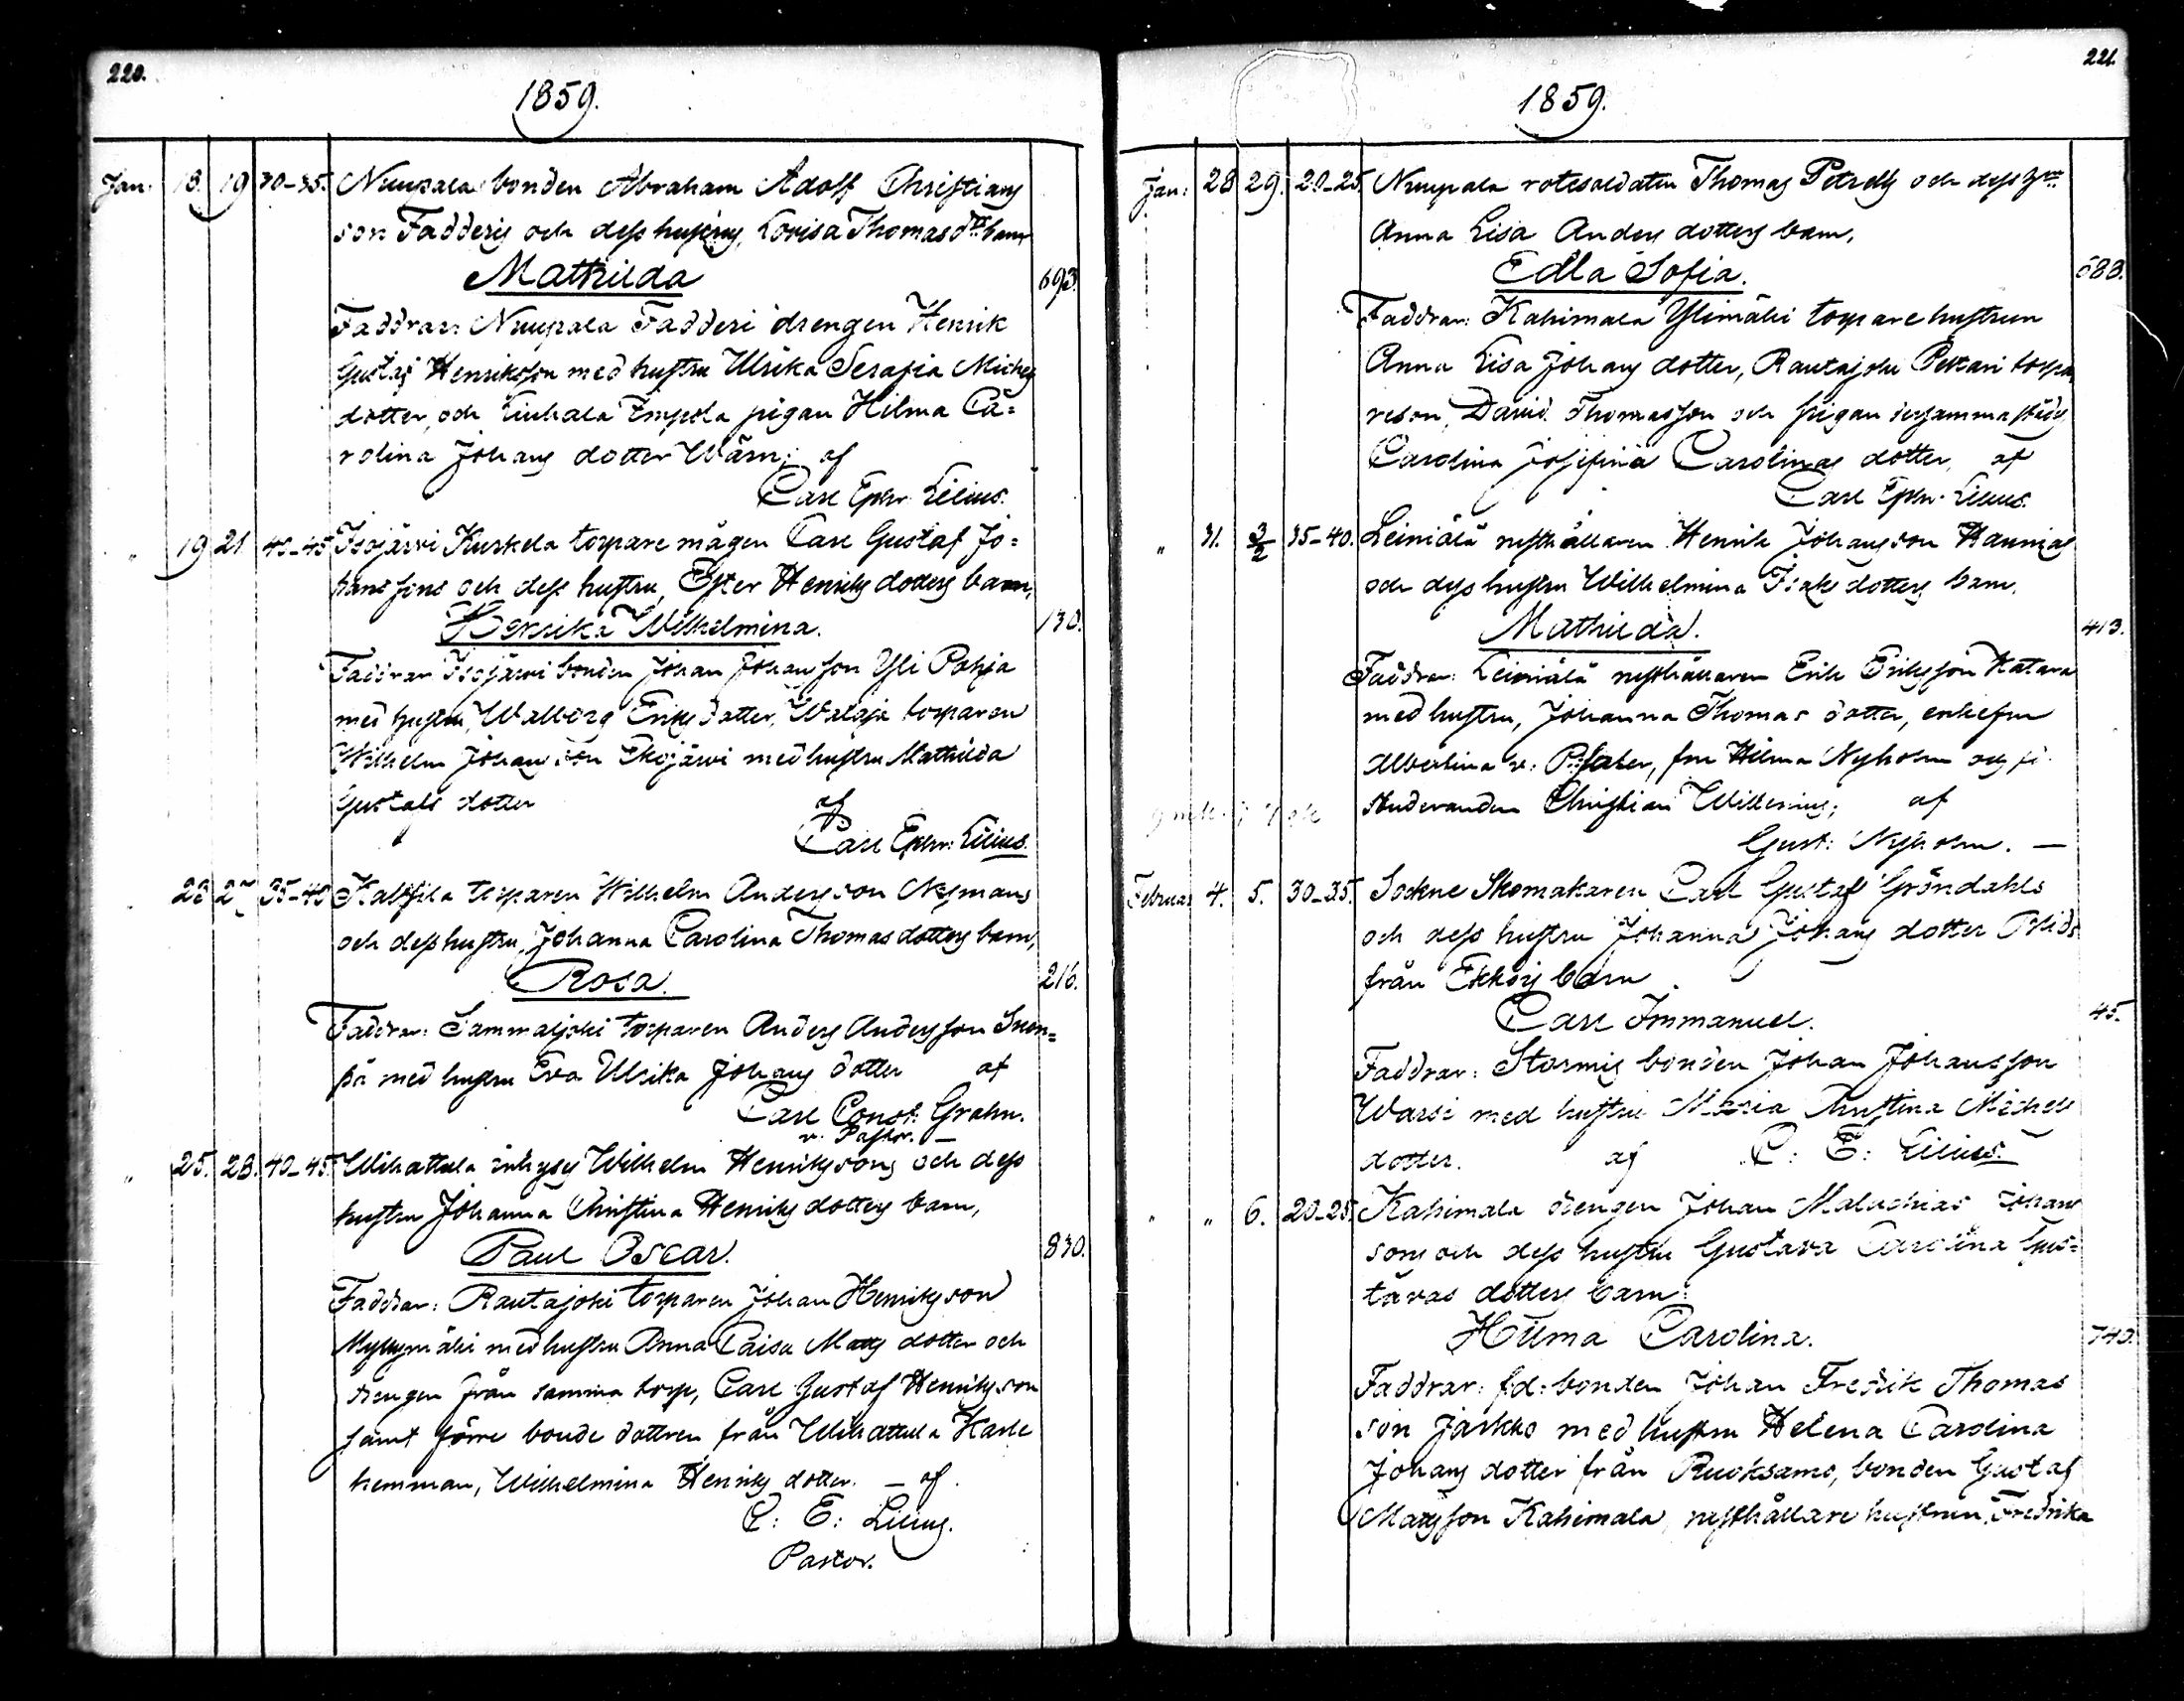 220.
1859.
Jan: 18. 19 30-35. Nuupala bonden Abraham Adolf Christians
son Fadderis och dess hustrus, Lovisa Thomas dr barn
Mathilda 693.
Faddrar: Nuupala Fadderi drengen Henrik
Gustaf Henriksson med hustru Ulrika Serafia Michels
dotter, och Liuhala Impola pigan Hilma Ca=
rolina Johans dotter Wärn; af
Carl Ephr. Lilius.
" 19 21 40-45 Isojärvi Kuskela torpare mågen Carl Gustaf Jo=
hanssons och dess hustru, Ester Henriks dotters barn,
Henrika Wilhelmina. 130.
Faddrar Isojärvi bonden Johan Johansson Yli Pohja
med hustru, Walborg Eriks dotter, Wataja torparen
Wilhelm Johansson Ekojärvi med hustru Mathilda
Gustafs dotter af
Carl Ephr: Lilius.
" 23 27 35-40 torparen Wilhelm Andersson Nymans
och dess hustru, Johanna Carolina Thomas dotters barn,
Rosa. 216.
Faddrar: Sammaljoki torparen Anders Andersson Suon=
pä med hustru Eva Ulrika Johans dotter af
Carl Const: Grahn.
v. Pastor. —
" 25. 28. 40-45. Wihattula inhyses Wilhelm Henrikssons och dess
hustru Johanna Christina Henriks dotters barn,
Paul Oscar. 830.
Faddrar: Rautajoki torparen Johan Henriksson
Myllymäki med hustru Anna Caisa Matts dotter och
drengen från samma torp, Carl Gustaf Henriksson
samt förre bonde dottren från Wihattula Karle
hemman, Wilhelmina Henriks dotter. — af
C: E: Lilius.
Pastor.
221.
1859.
Jan: 28 29. 20-25. Nuupala rotesoldaten Thomas Petrells och dess
Anna Lisa Anders dotters barn,
Edla Sofia. 688.
Faddrar: Kahimala Ylimäki torpare hustrun
Anna Lisa Johans dotter, Rautajoki Pekari torpa
reson, David Thomasson och pigan dersammastädes
Carolina Josefina Carolinas dotter, af
Carl Ephr. Lilius.
" 31. 3/2 35-40. Leiniälä rusthållaren Henrik Johansson Haunias
och dess hustru Wilhelmina Isaks dotters barn,
Mathilda. 413.
Faddrar: Leiniälä rusthållaren Erik Eriksson Katara
med hustru, Johanna Thomas dotter, enkefru
Albertina v: Pfaler, fru Hilma Nyholm och
studeranden Christian Willenius; af
Gust: Nyholm. —
Februar 4. 5. 30-35. Sockne Skomakaren Carl Gustaf Gröndahls
och dess hustru Johanna Johans dotter
från Ekkois barn
Carl Immanuel. 45.
Faddrar: Stormis bonden Johan Johansson
Warsi med hustru Maria Christina Michels
dotter. af C: E: Lilius.
" " 6. 20-25. Kahimala drengen Johan Malachias Johans
sons och dess hustru Gustava Carolina Gus=
tavas dotters barn:
Hilma Carolina. 740.
Faddrar: fd: bonden Johan Fredrik Thomas
son Jaskko med hustru Helena Carolina
Johans dotter från Ruoksamo, bonden Gustaf
Matsson Kahimala, rusthållare hustrun, Fredrika